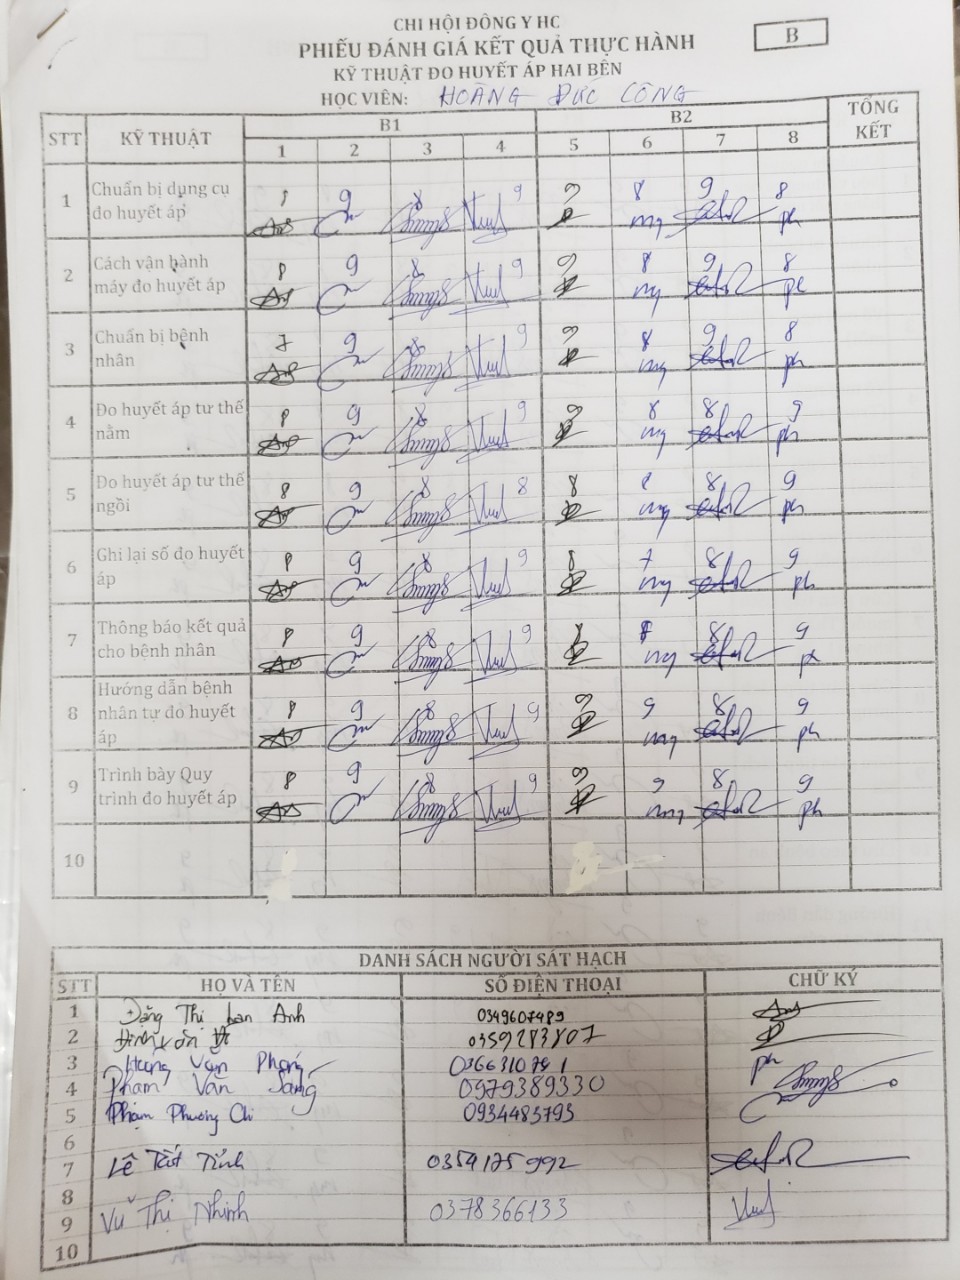 CHI HỘI ĐÔNG Y HC
PHIẾU ĐÁNH GIÁ KẾT QUẢ THỰC HÀNH
B
KỸ THUẬT ĐO HUYẾT ÁP HAI BÊN
HỌC VIÊN: HOÀNG ĐỨC CÔNG
STT KỸ THUẬT B1 B2 TỔNG KẾT
1 2 3 4 5 6 7 8
1 Chuẩn bị dụng cụ đo huyết áp 8 9 8 9 9 8 9 8
2 Cách vận hành máy đo huyết áp 8 9 8 9 9 8 9 8
3 Chuẩn bị bệnh nhân 7 9 8 9 9 8 9 8
4 Đo huyết áp tư thế nằm 8 9 8 9 9 8 8 9
5 Đo huyết áp tư thế ngồi 8 9 8 8 8 8 8 9
6 Ghi lại số đo huyết áp 8 9 8 9 8 7 8 9
7 Thông báo kết quả cho bệnh nhân 8 9 8 9 8 8 9
8 Hướng dẫn bệnh nhân tự đo huyết áp 8 9 8 9 9 9 8 9
9 Trình bày Quy trình đo huyết áp 8 9 8 9 9 9 8 9
10
DANH SÁCH NGƯỜI SÁT HẠCH
STT HỌ VÀ TÊN SỐ ĐIỆN THOẠI CHỮ KÝ
1 Đặng Thị Lan Anh 0349607489
2 0359283807
3 Văn Phong
4 Phạm Văn Sang 0979389330
5 Phạm Phương Chi 0934483793
6
7 Lê Tất Tỉnh 0354175992
8
9 Vũ Thị Nhinh 0378366133
10